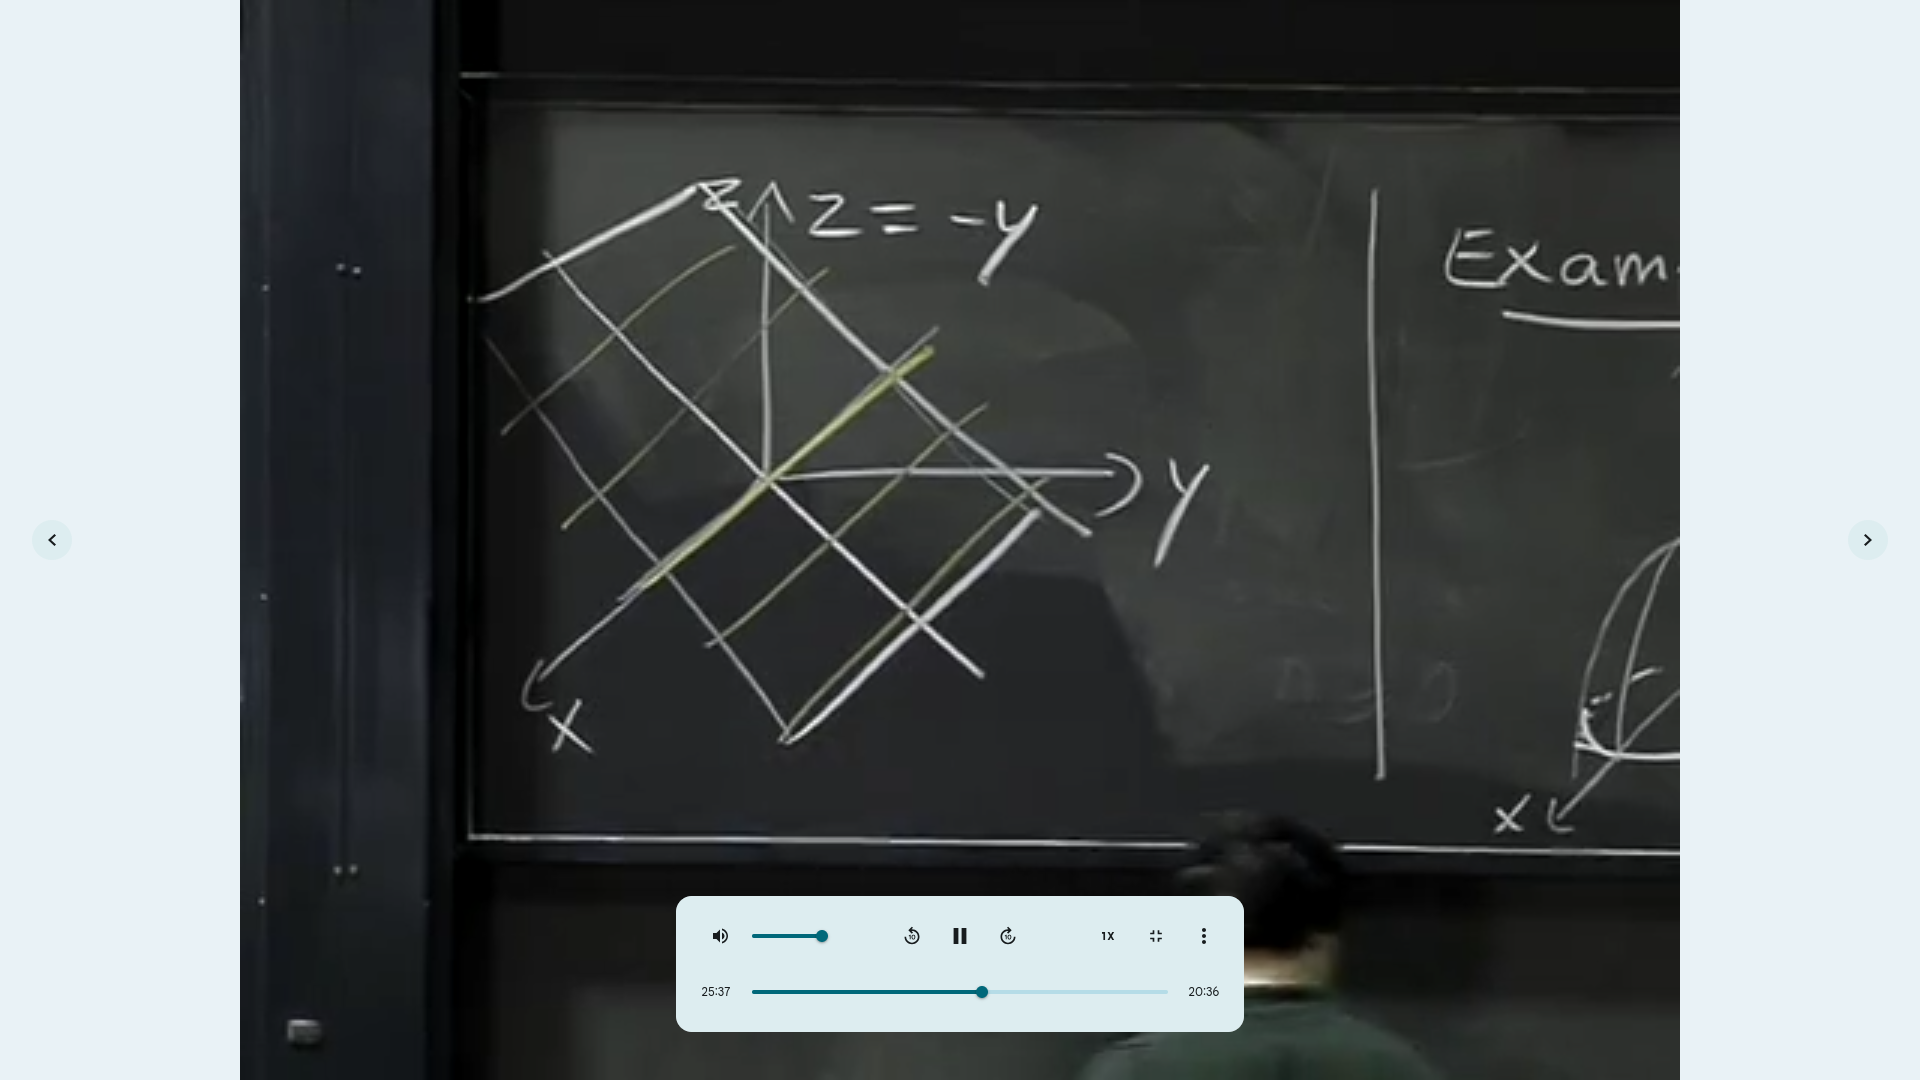 z
z = -y
Exam
y
x
x
1X
25:37
20:36